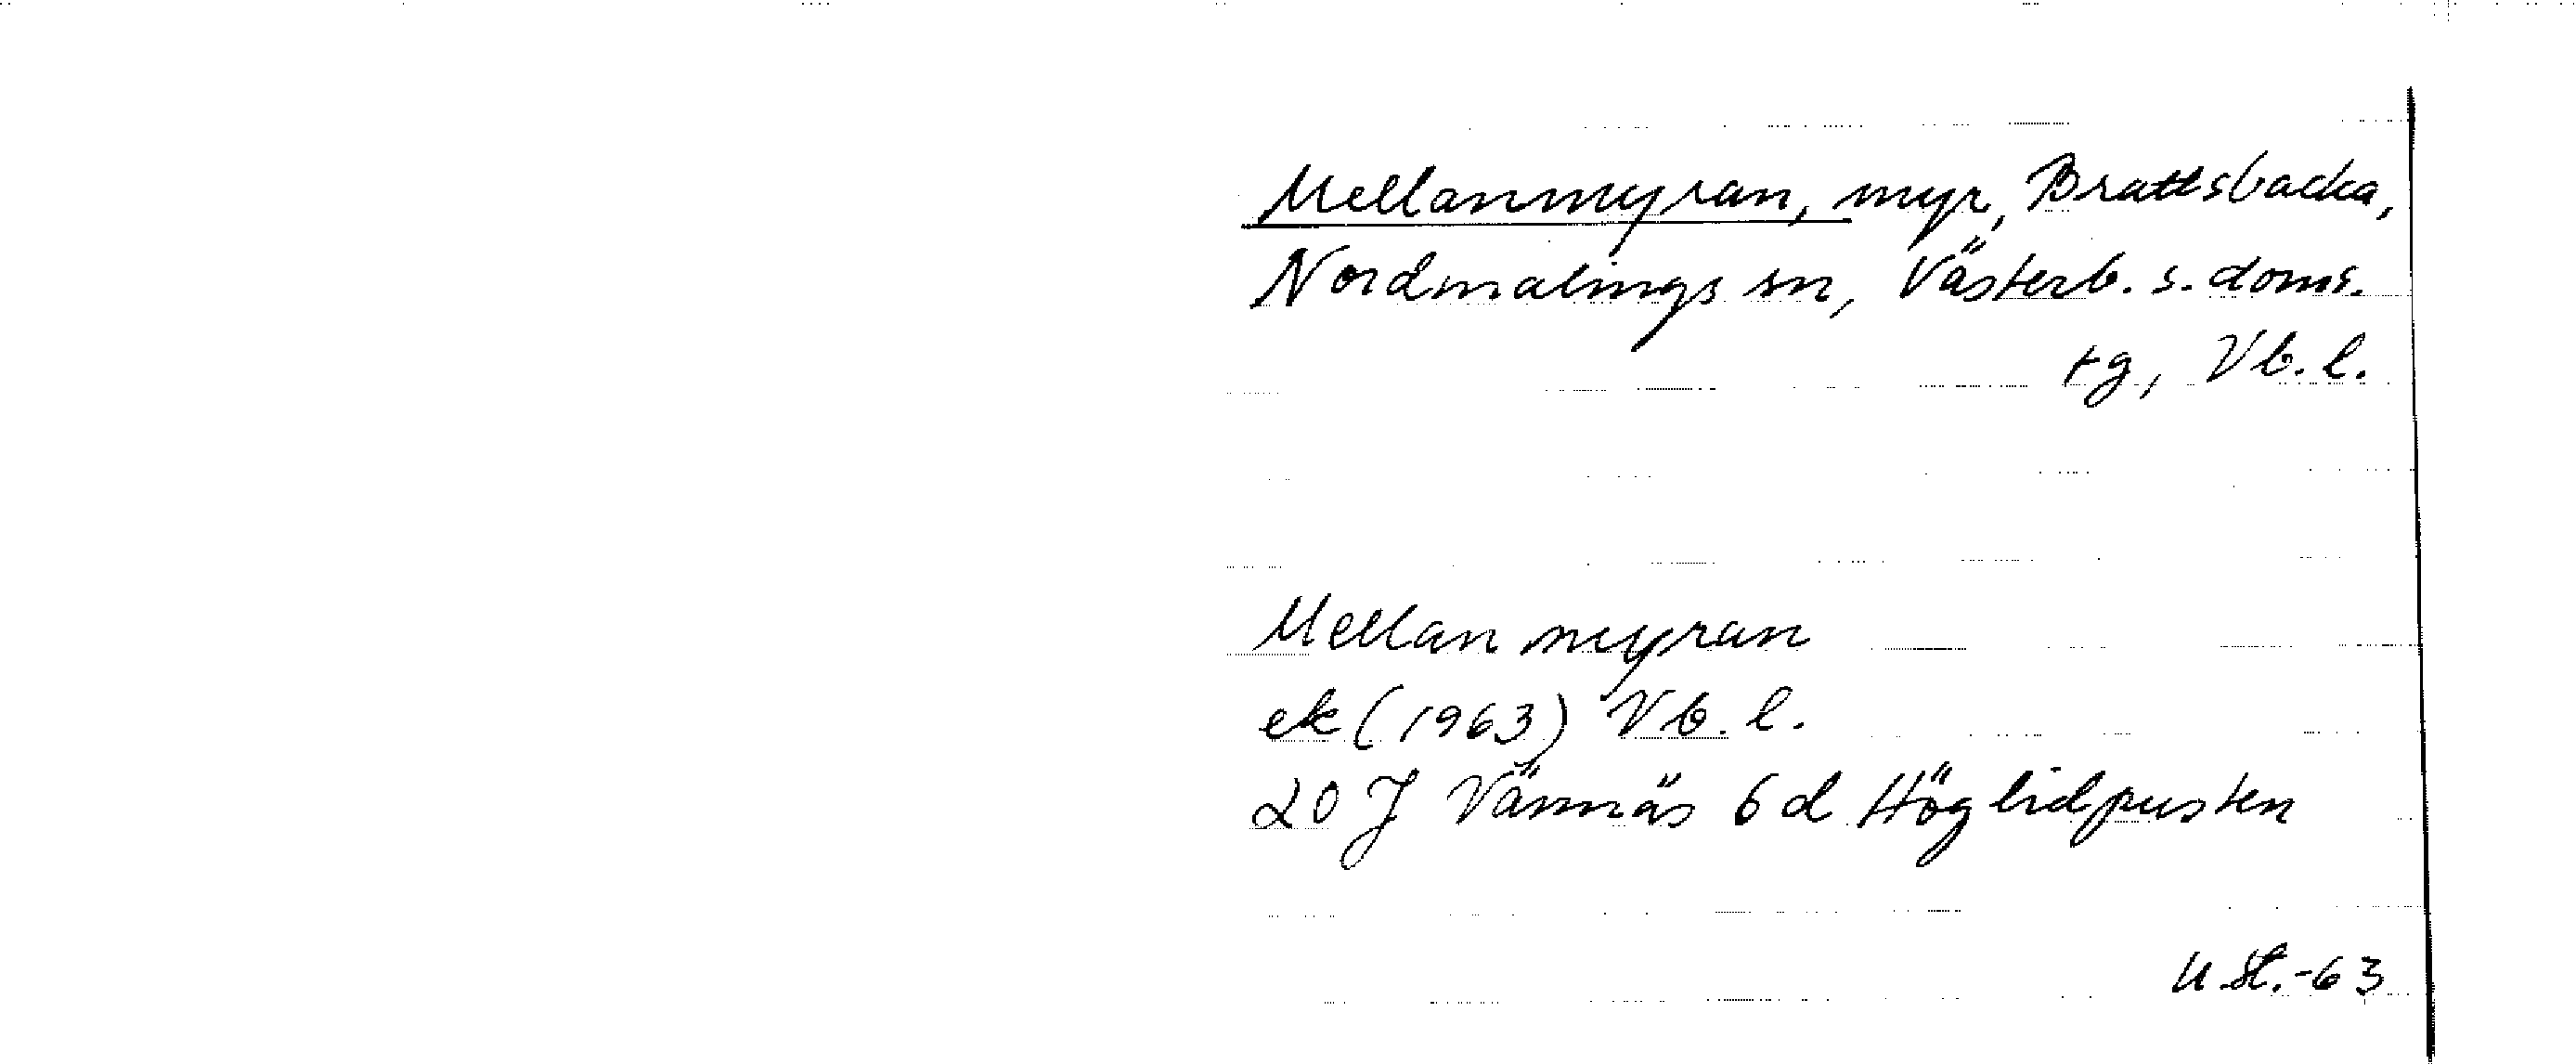 Mellanmyran, myr, Brattsbacka,
Nordmalings sn, Västerb. s. doms.
tg, Vb. l.
Mellanmyran
ek (1963) Vb. l.
20 J Vännäs 6 d Höglidpusten
U. St. -63